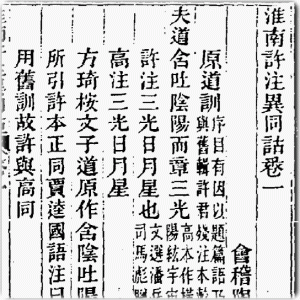 淮南許注異同詁卷一
會稽陶
原道訓序目有因以題篇語乃
與舊輯許君殘注本
夫道含吐陰陽而章三光高本作橫
陽紘宇宙
許注三光日月星也文選潘
司馬彪
高注三光日月星
方琦桉文子道原作含陰吐陽
所引許本正同賈逵國語注曰
用舊訓故許與高同